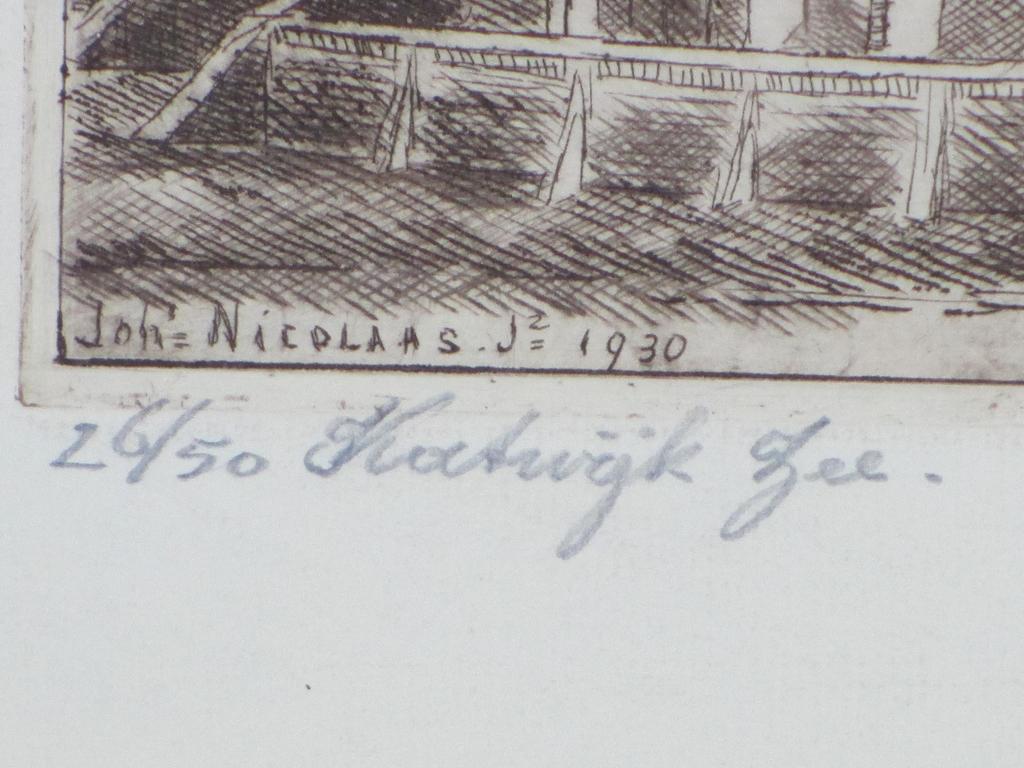 Joh's NICOLAAS. Jr 1930
26/50 Katwijk Zee.